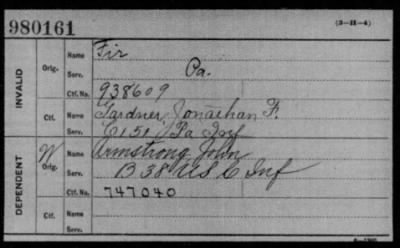 980161
(3-11-4)
INVALID
Orig.
Name
Fir
Serv.
Pa.
Ctf. No.
938609
Ctf.
Name
Gardner, Jonathan F.
Serv.
C 151 Pa Inf
DEPENDENT
W
Orig.
Name
Armstrong John
Serv.
B 38 U S C Inf
Ctf. No.
747040
Ctf.
Name
Serv.